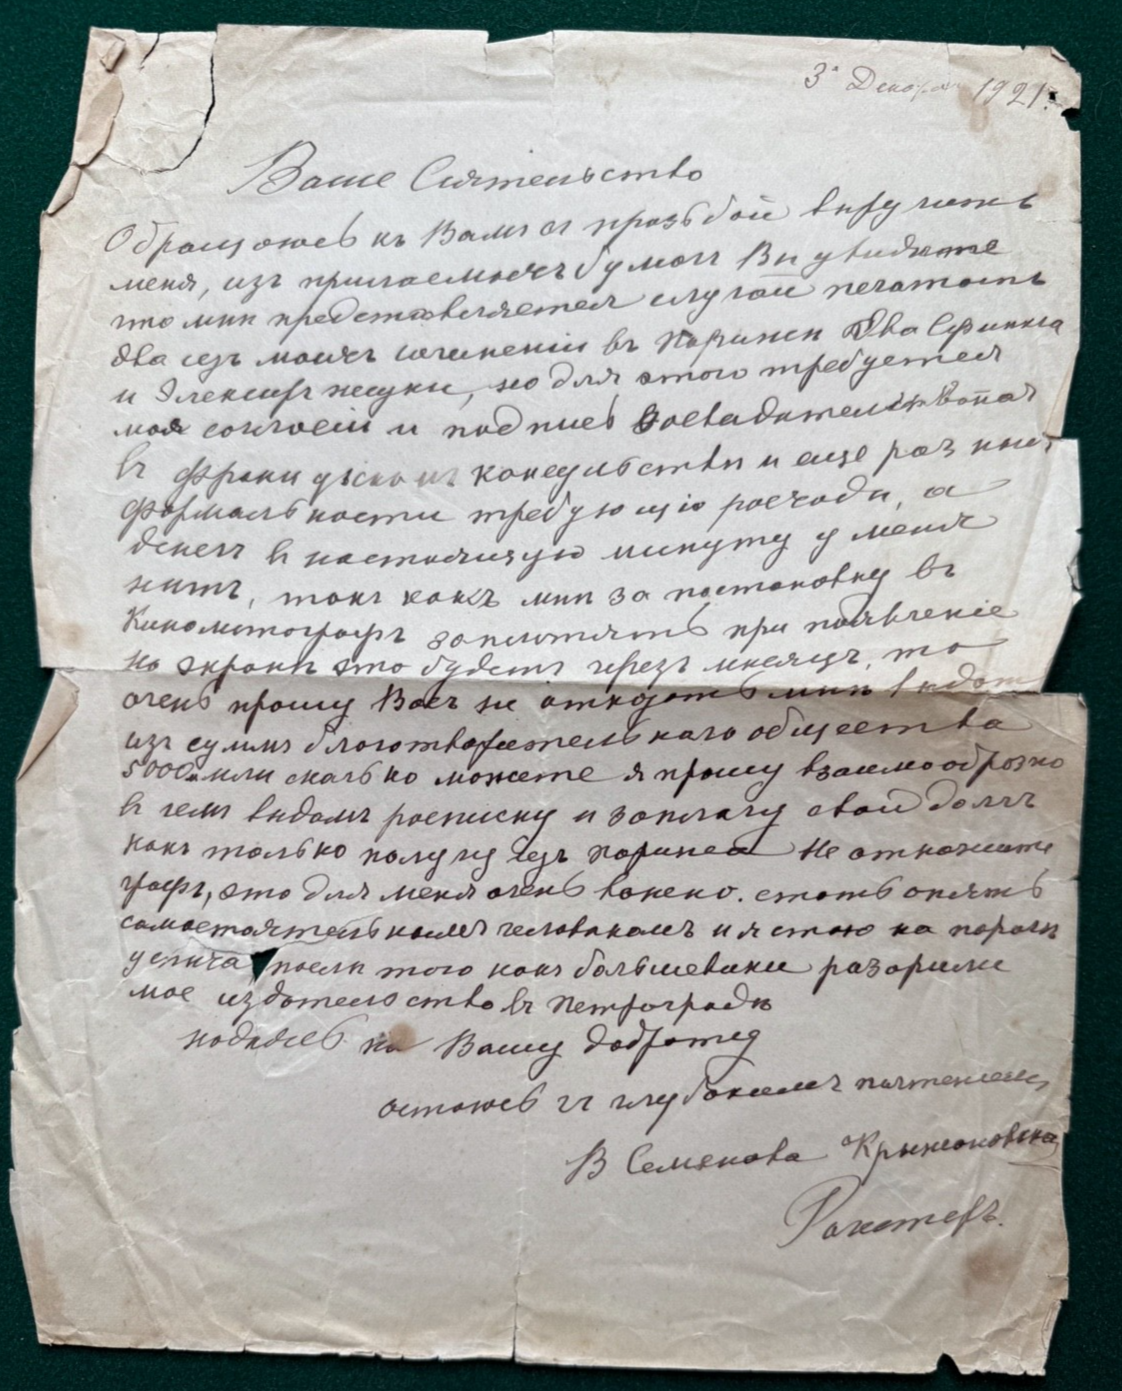 3го Декабря 1921г.
Ваше Сиятельство
Обращаюсь къ Вамъ съ прозьбой выручить
меня, изъ прилаемыхъ бумагъ Вы увидите
что мнѣ представляется случай печатать
два изъ моихъ сочиненiй въ Парижѣ Два Сфинкса
и Элексиръ жизни, но для этого требуется
мое согласiе и подпись
въ Французскомъ консульствѣ и еще разныя
формальности требующiя расходы, а
денегъ въ настоящую минуту у меня
нѣтъ, такъ какъ мнѣ за постановку въ
Кинематографъ заплотятъ при появленiе
на экранѣ это будетъ черезъ мѣсяцъ, то
очень прошу Васъ не отказать мнѣ выдать
изъ суммъ благотварительнаго общества
5000 или сколько можете я прошу взаимообразно
въ чемъ выдамъ росписку и заплачу свой долгъ
какъ только получу изъ Парижа Не откажите
графъ, это для меня очень важно. стать опять
самостоятельнымъ человѣкомъ и я стою на порогѣ
успѣха послѣ того какъ большевики разорили
мое издательство въ Петроградѣ
надѣясь на Вашу доброту
остаюсь съ глубокимъ почтенiемъ
В Семенова Крыжановская
Рочестеръ.